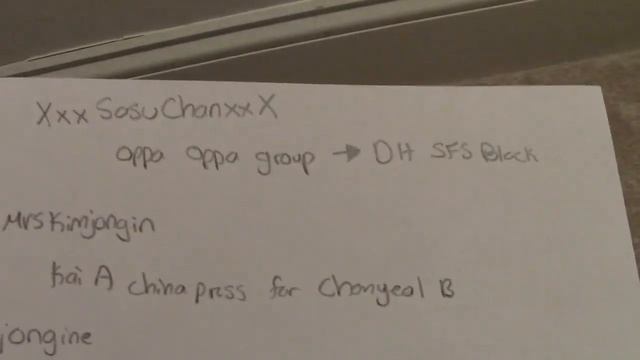 XxxSosuChanxxX
oppa oppa group → DH SFS Black
MrsKimjongin
Kai A china press for Chanyeol B
jongine